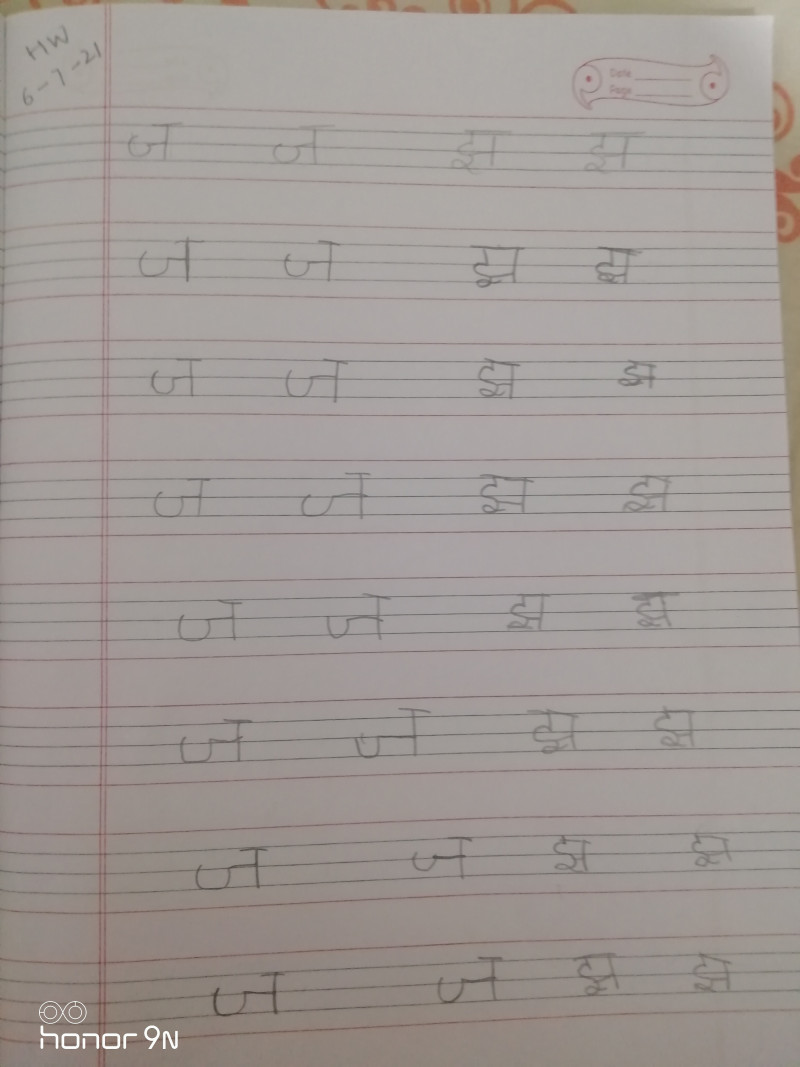 HW
6-7-21
Date
Page
ज ज झ झ
ज ज झ झ
ज ज झ झ
ज ज झ झ
ज ज झ झ
ज ज झ झ
ज ज झ झ
ज ज झ झ
honor 9N